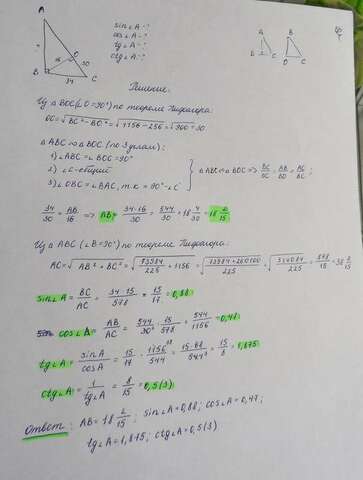 A
?
B
16
O
30
34
C
sin∠A-?
cos∠A-?
tg∠A-?
ctg∠A-?
A
B
C
B
O
C
Решение:
Из △BOC(∠O=90°) по теореме Пифагора:
OC=√BC²-BO² = √1156-256 = √900 = 30
△ABC ∾ △BOC (по 3 углам):
1) ∠ABC = ∠BOC = 90°
2) ∠C-общий
3) ∠OBC = ∠BAC, т.к = 90°-∠C
} △ABC ∾ △BOC => BC/OC = AB/BO = AC/BC;
34/30 = AB/16 => AB = 34·16/30 = 544/30 = 18 4/30 = 18 2/15
Из △ABC (∠B=90°) по теореме Пифагора:
AC = √AB²+BC² = √73984/225 + 1156 = √73984+260100/225 = √334084/225 = 578/15 = 38 8/15
sin∠A = BC/AC = 34·15/578 = 15/17 = 0,88
cos∠A = AB/AC = 544/30 · 15/578 = 544/1156 = 0,47
tg∠A = sinA/cosA = 15/17 · 1156/544 = 15·68/544 = 15/8 = 1,875
ctg∠A = 1/tg∠A = 8/15 = 0,5(3)
Ответ: AB = 18 2/15; sin∠A=0,88; cos∠A=0,47;
tg∠A=1,875; ctg∠A=0,5(3)